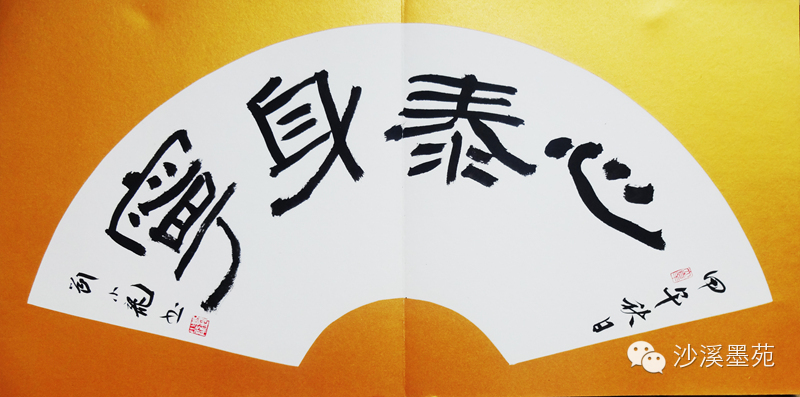 心泰身寧
甲午秋日
小龍书
沙溪墨苑